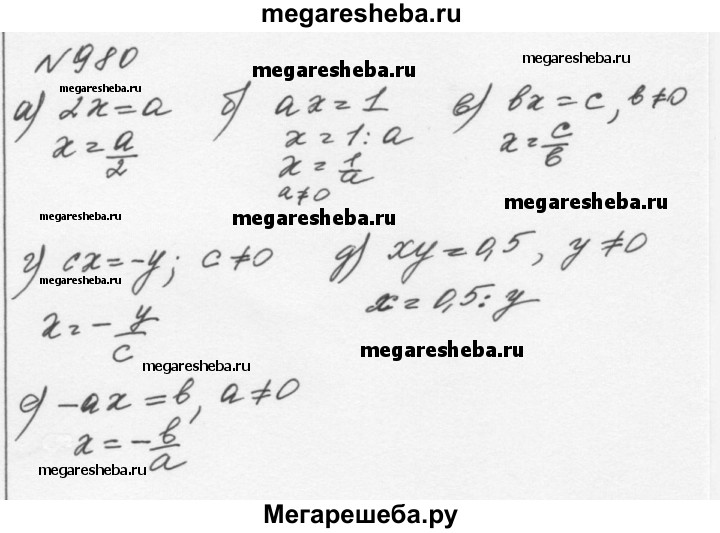 megaresheba.ru
№980
megaresheba.ru
megaresheba.ru
megaresheba.ru
а) 2x = a
x = a/2
б) ax = 1
x = 1 : a
x = 1/a
a ≠ 0
в) bx = c, b ≠ 0
x = c/b
megaresheba.ru
megaresheba.ru
megaresheba.ru
г) cx = -y; c ≠ 0
megaresheba.ru
x = - y/c
д) xy = 0,5, y ≠ 0
x = 0,5 : y
megaresheba.ru
megaresheba.ru
е) -ax = b, a ≠ 0
x = - b/a
megaresheba.ru
Мегарешеба.ру